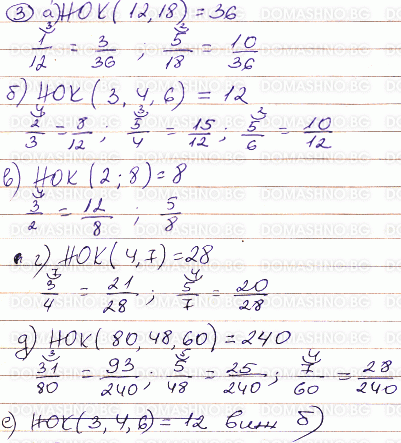 ③ а) НОК(12,18) = 36
1/12 (3) = 3/36 ; 5/18 (2) = 10/36
б) НОК(3, 4, 6) = 12
2/3 (4) = 8/12 ; 5/4 (3) = 15/12 ; 5/6 (2) = 10/12
в) НОК(2;8) = 8
3/2 (4) = 12/8 ; 5/8
г) НОК(4,7) = 28
3/4 (7) = 21/28 ; 5/7 (4) = 20/28
д) НОК(80,48,60) = 240
31/80 (3) = 93/240 ; 5/48 (5) = 25/240 ; 7/60 (4) = 28/240
е) НОК(3,4,6) = 12 виж б)
DOMASHNO.BG